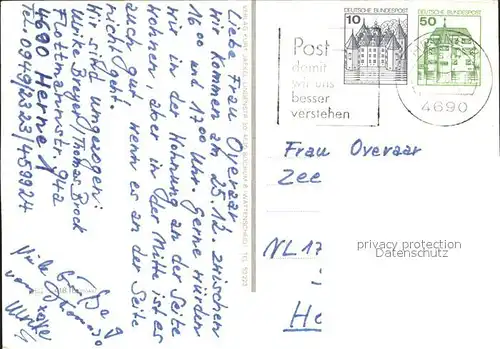 Liebe Frau Overaar
wir kommen am 25.12. zwischen
16 00 und 17 00 Uhr. Gerne würden
wir in der Wohnung an der Seite
wohnen, aber in der Mitte ist es
auch gut, wenn es an der Seite
nicht geht.
Wir sind umgezogen:
Ulrike Breyer/Thomas Brock
Flottmannstr. 94a
4690 Herne 1
DEUTSCHE BUNDESPOST
10
DEUTSCHE BUNDESPOST
50
Post
damit
wir uns
besser
verstehen
4690
Frau Overaar
Zee
NL 17
He
privacy protection
Datenschutz